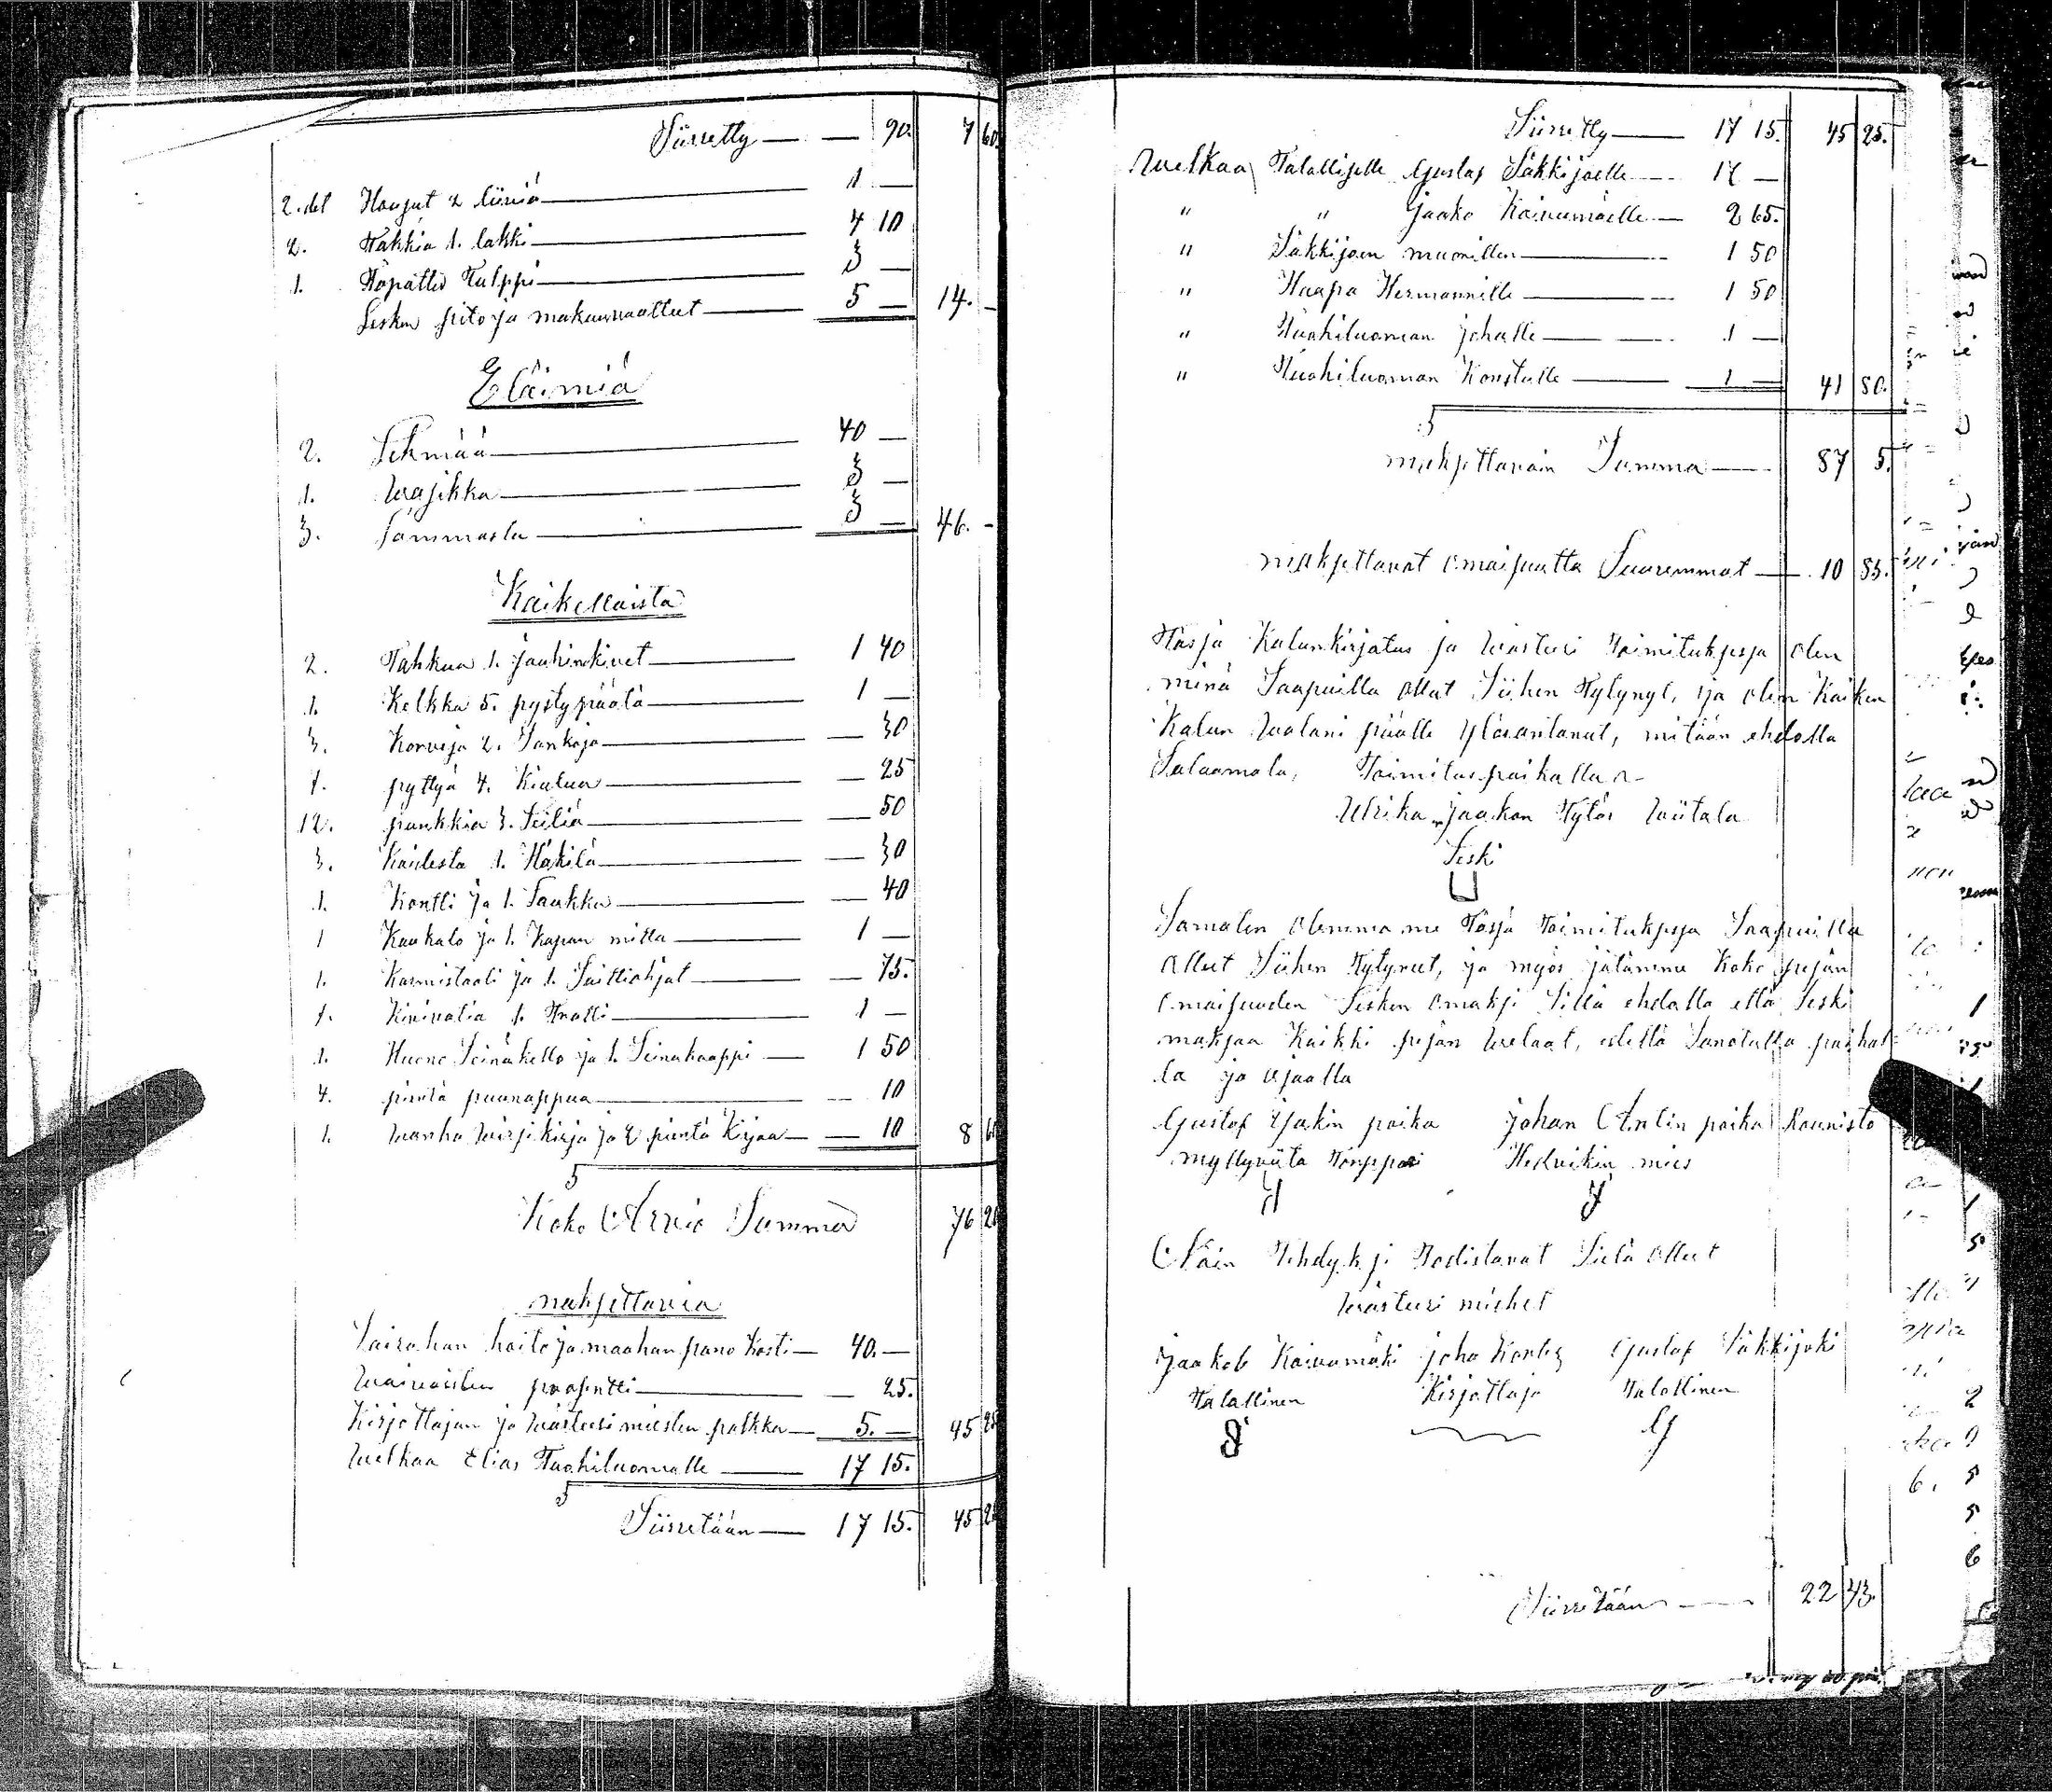 Siirretty — — 90. 7 60.
2.det Housut 2 liiviä — 1 —
2. Takkia 1. lakki — 4 10
1. Töpättis Tulppi — 3 —
Lesken pito ja makuuvaattet — 5 — 14. -
Eläimiä
2. Lehmää — 40 —
1. Wasikka — 3 —
3. Lammasta — 3 — 46. -
Kaikellaista
2. Tahkua 1. jauhinkivet — 1 40
1. Kelkka 5. pystypäätä — 1 —
3. Korvija 2. Sankoja — — 30
7. pyttyä 4. Kiulua — — 25
12. punkkia 3. Tiiliä — — 50
3. Kaidesta 1. Häkilä — — 30
1. Kontti ja 1. Laukku — — 40
1 Kaukalo ja 1. Kapan mitta — 1 —
1. Karmistooli ja 1. Suittiohjat — — 75.
1. Kivivatia 1. Tratti — 1 —
1. Huono Seinäkello ja 1. Seinäkaappi — 1 50
4. pientä puunappua — — 10
1. Wanha Wirsikirja ja 2 pientä Kirjaa — — 10 8 60
Koko Arvio Summa 76 20
maksettavia
Sairahan hoito ja maahan pano Kosti — 40. —
Waivaisten prosentti — — 25.
Kirjottajan ja Wästerimiesten palkka — 5. — 45 25
Welkaa Elias Tuohiluomalle — 17 15.
Siirretään — 17 15. 45 25
Siirretty — 17 15. 45 25.
Welkaa Talolliselle Gustaf Säkkijoelle — 17 —
" " Jaako Koivumäelle — 2 65.
" Säkkijoen muorillen — 1 50
" Haapa Hermannille — 1 50
" Tuohiluoman Johalle — 1 —
" Tuohiluoman Konstulle — 1 — 41 80.
maksettavain Summa — 87 5.
maksettavat omaisuutta Suuremmat — 10 85.
Täsjä Kalunkirjotus ja Wärteeri Toimituksesja olen
minä Saapuilla ollut Siihen Tytynyt, ja olen Kaiken
Kalun Walani päälle Ylösantanut, mitään ehdolla
Salaamata, Toimitus paikalla
Ulrika Jaakon Tytär Wiitala
Leski
U
Samaten olemma me Täsjä Toimituksesja Saapuilla
ollet Siihen Tytyneet, ja myös jätämme Koko pesän
omaisuuden Lesken omaksi Sillä ehdolla että Leski
maksaa Kaikki pesän Welaat, edellä Sanotulla paikal-
la ja Ajaalla
Gustof Jakin poika Johan Antin poika Kaunisto
myllyviita Torppari Hedvikin mies
Näin Tehdyksi Todistavat Sielä ollet
Wärteeri miehet
Jaakob Koivumäki Joha Kontes Gustaf Säkkijoki
Talollinen Kirjottaja Talollinen
G
Siirretään — 22 43.